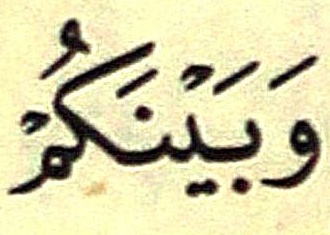 وَبَيْنَكُمْ